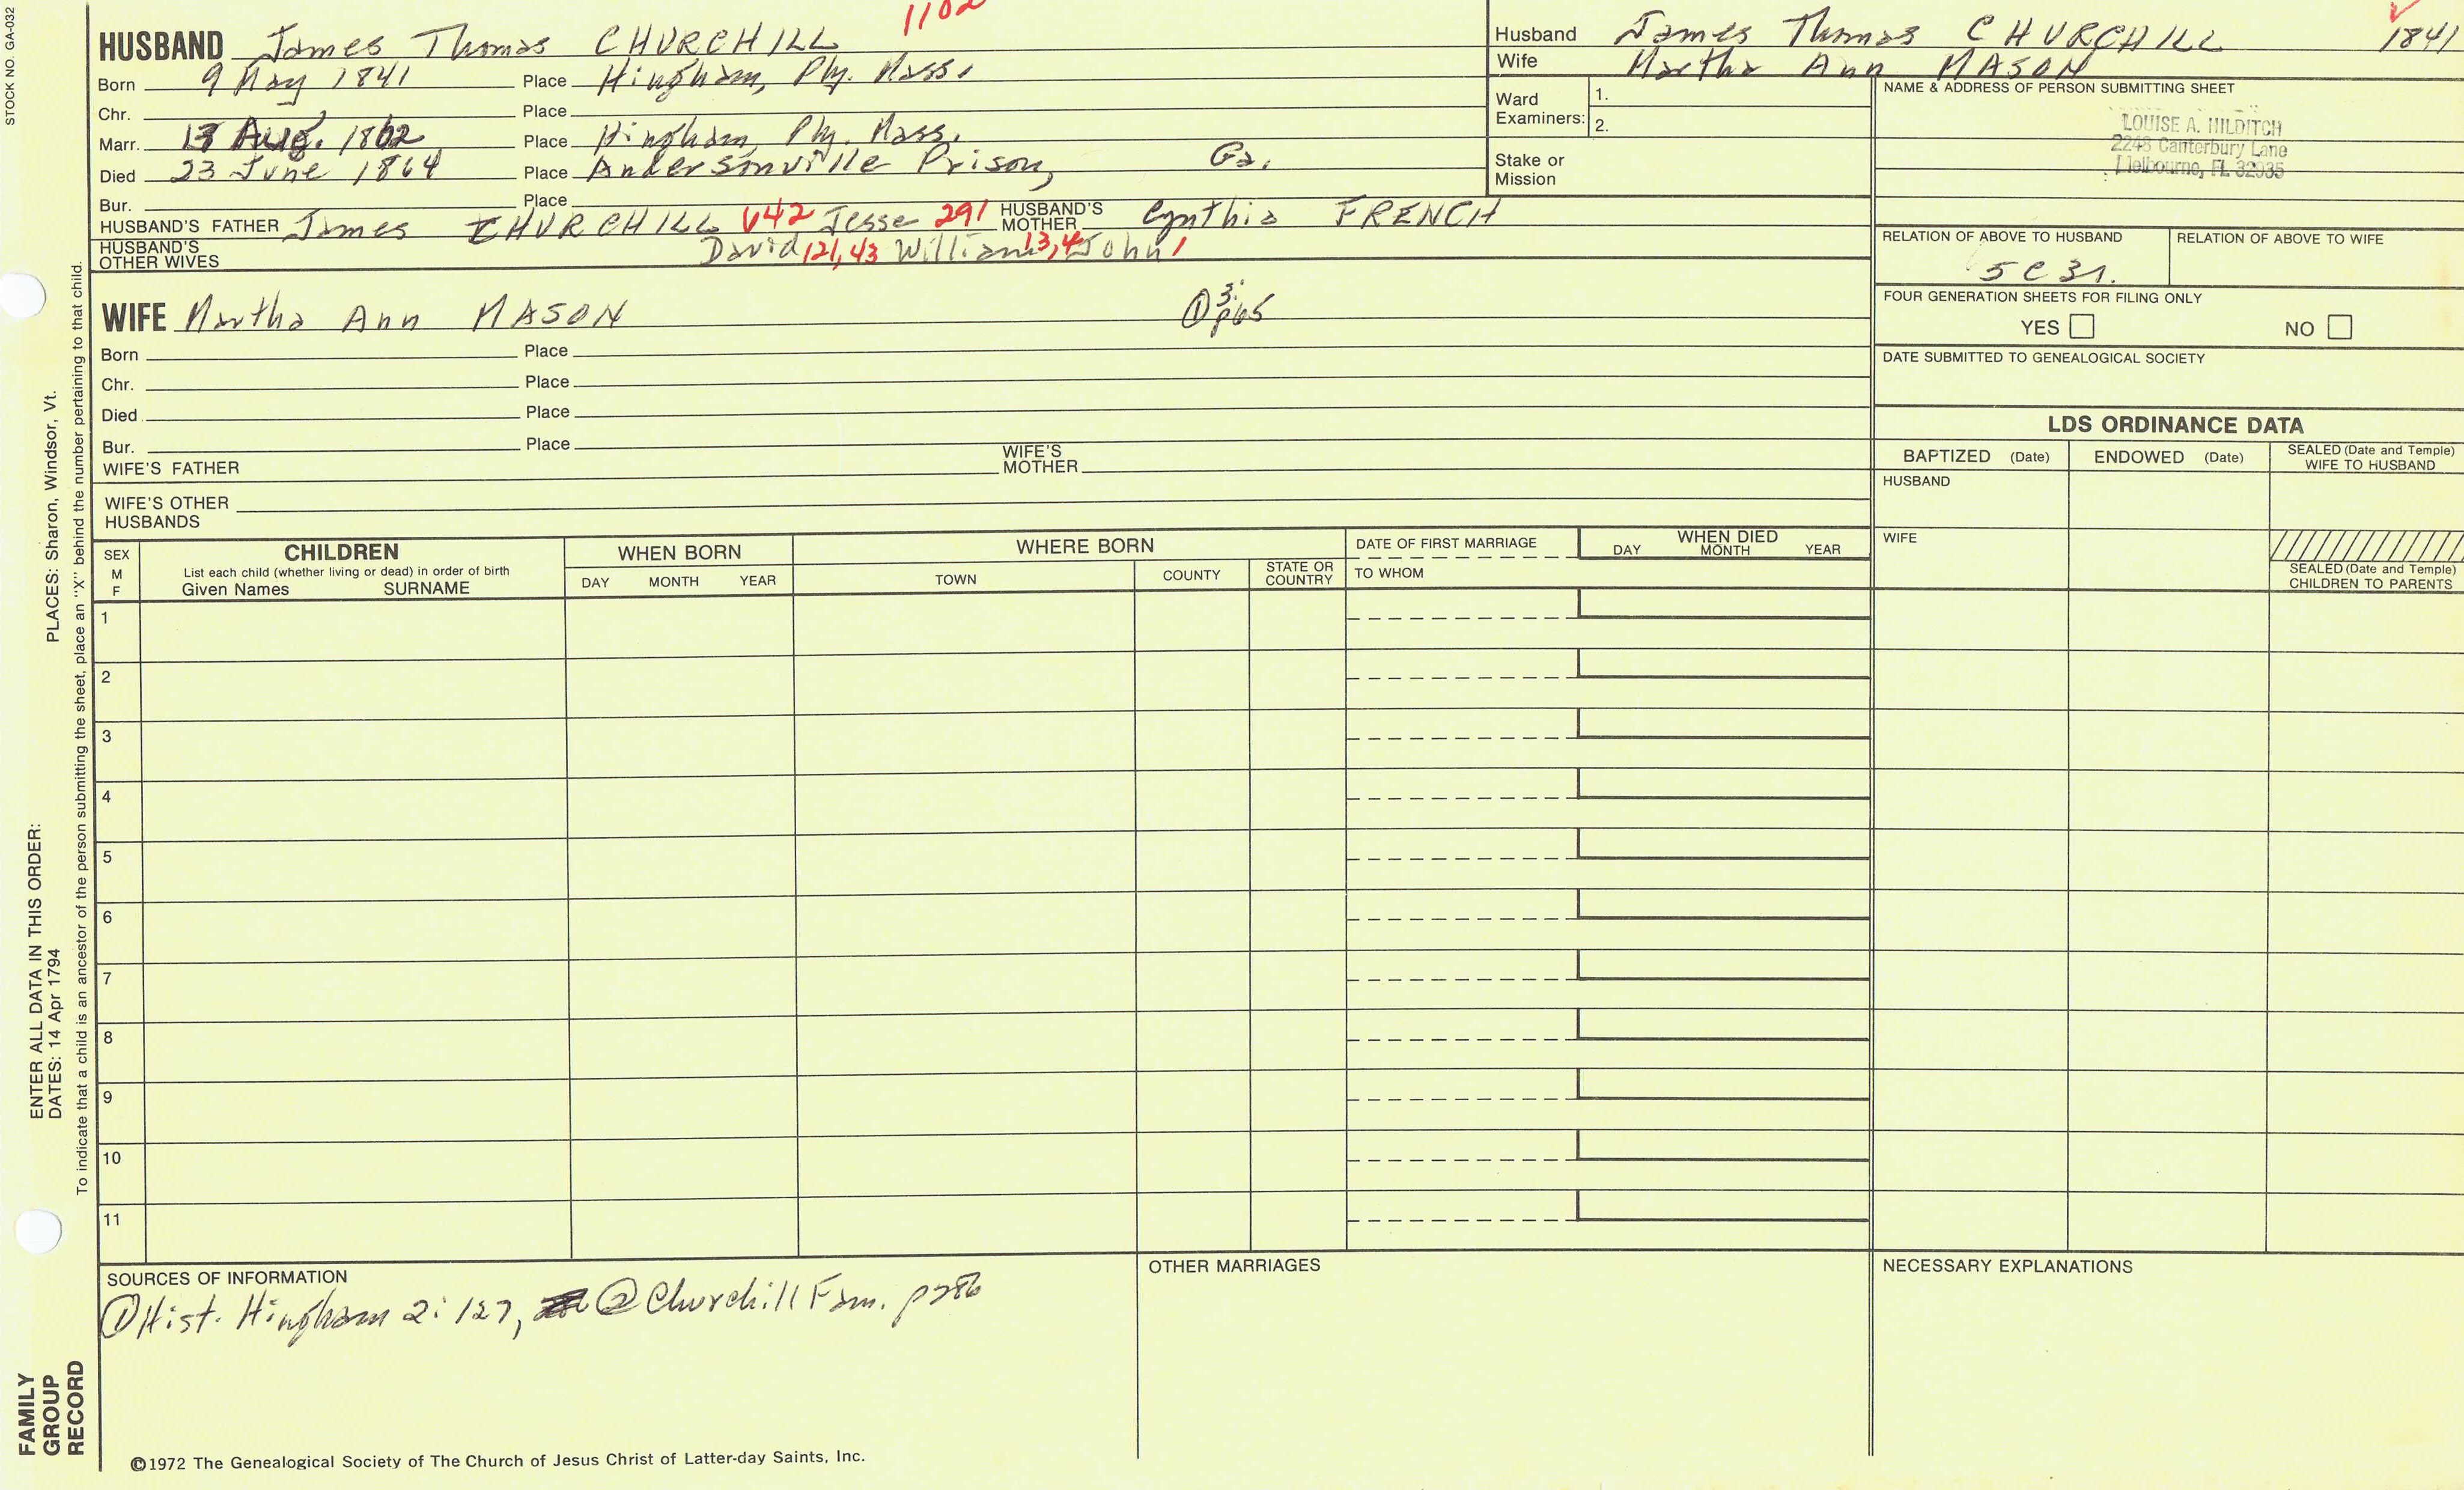 STOCK NO. GA-032
1102
HUSBAND James Thomas CHURCHILL
Born 9 May 1841 Place Hingham, Ply. Mass.
Chr. Place
Marr. 13 Aug. 1862 Place Hingham, Ply. Mass.
Died 23 June 1864 Place Andersonville Prison, Ga.
Bur. Place
HUSBAND'S FATHER James CHURCHILL 642 Jesse 291 HUSBAND'S MOTHER Cynthia FRENCH
HUSBAND'S OTHER WIVES David 121,43 William 13,4 John 1
WIFE Martha Ann MASON ① p65
Born Place
Chr. Place
Died Place
Bur. Place
WIFE'S FATHER WIFE'S MOTHER
WIFE'S OTHER HUSBANDS
Husband James Thomas CHURCHILL 1841
Wife Martha Ann MASON
Ward Examiners: 1.
2.
Stake or Mission
NAME & ADDRESS OF PERSON SUBMITTING SHEET
LOUISE A. HILDITCH
2248 Canterbury Lane
Melbourne, FL 32935
RELATION OF ABOVE TO HUSBAND RELATION OF ABOVE TO WIFE
5C3r.
FOUR GENERATION SHEETS FOR FILING ONLY
YES NO
DATE SUBMITTED TO GENEALOGICAL SOCIETY
LDS ORDINANCE DATA
BAPTIZED (Date) ENDOWED (Date) SEALED (Date and Temple) WIFE TO HUSBAND
HUSBAND
WIFE
SEALED (Date and Temple) CHILDREN TO PARENTS
SEX M F
CHILDREN
List each child (whether living or dead) in order of birth
Given Names SURNAME
WHEN BORN
DAY MONTH YEAR
WHERE BORN
TOWN COUNTY STATE OR COUNTRY
DATE OF FIRST MARRIAGE
TO WHOM
WHEN DIED
DAY MONTH YEAR
1
2
3
4
5
6
7
8
9
10
11
SOURCES OF INFORMATION
① Hist. Hingham 2: 127, ② Churchill Fam. p286
OTHER MARRIAGES
NECESSARY EXPLANATIONS
©1972 The Genealogical Society of The Church of Jesus Christ of Latter-day Saints, Inc.
FAMILY GROUP RECORD
ENTER ALL DATA IN THIS ORDER:
DATES: 14 Apr 1794
PLACES: Sharon, Windsor, Vt.
To indicate that a child is an ancestor of the person submitting the sheet, place an "X" behind the number pertaining to that child.